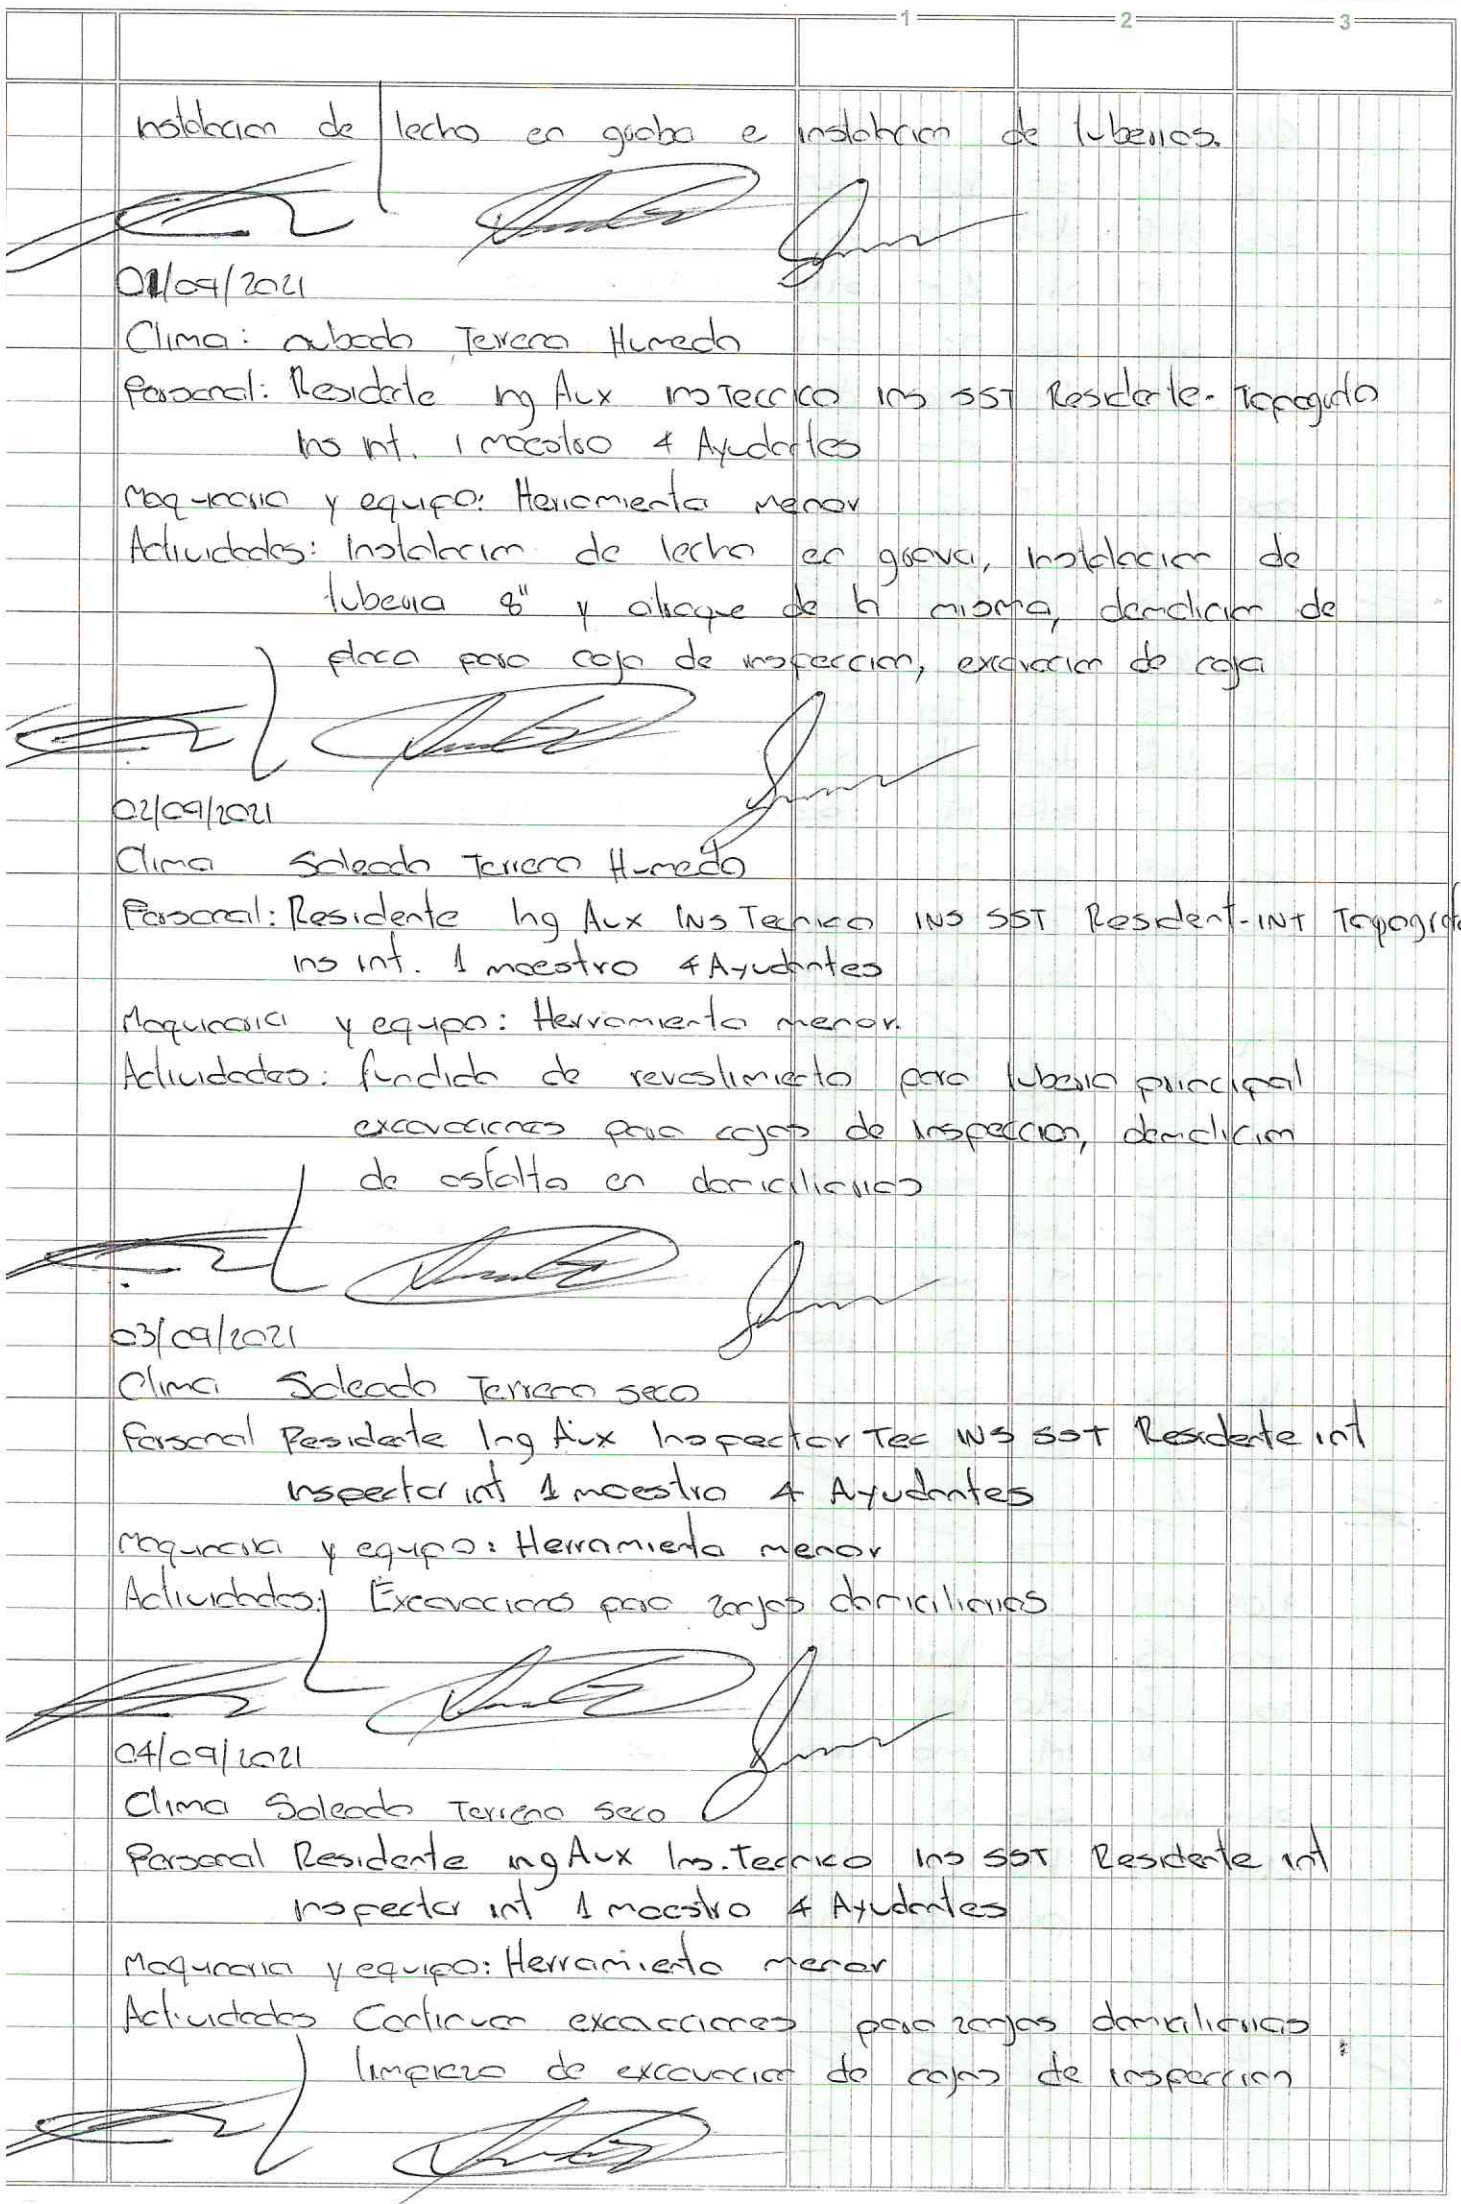 1 2 3
instalacion de lecho en gueba e instalacion de tuberias.
01/09/2021
Clima: nubado Terreno Humedo
Personal: Residente ing Aux ins Tecnico ins SST Residente- Topografo
ins int. 1 maestro 4 Ayudantes
Maquinaria y equipo: Herramienta menor
Actividades: Instalacion de lecho en grava, instalacion de
tuberia 8" y atraque de la misma, demolicion de
placa para caja de inspeccion, excavacion de caja
02/09/2021
Clima Soleado Terreno Humedo
Personal: Residente Ing Aux INS Tecnico INS SST Resident-INT Topografo
ins int. 1 maestro 4 Ayudantes
Maquinaria y equipo: Herramienta menor.
Actividades: fundida de revestimiento para tuberia principal
excavaciones para cajas de inspeccion, demolicion
de asfalto en domiciliarias
03/09/2021
Clima Soleado Terreno seco
Personal Residente Ing Aux Inspector Tec INS SST Residente int
inspector int 1 maestro 4 Ayudantes
Maquinaria y equipo: Herramienta menor
Actividades: Excavaciones para zanjas domiciliarias
04/09/2021
Clima Soleado Terreno seco
Personal Residente ing Aux Ins. Tecnico ins SST Residente int
inspector int 1 maestro 4 Ayudantes
Maquinaria y equipo: Herramienta menor
Actividades Continuan excacciones para zanjas domiciliarias
limpieza de excavacion de cajas de inspeccion